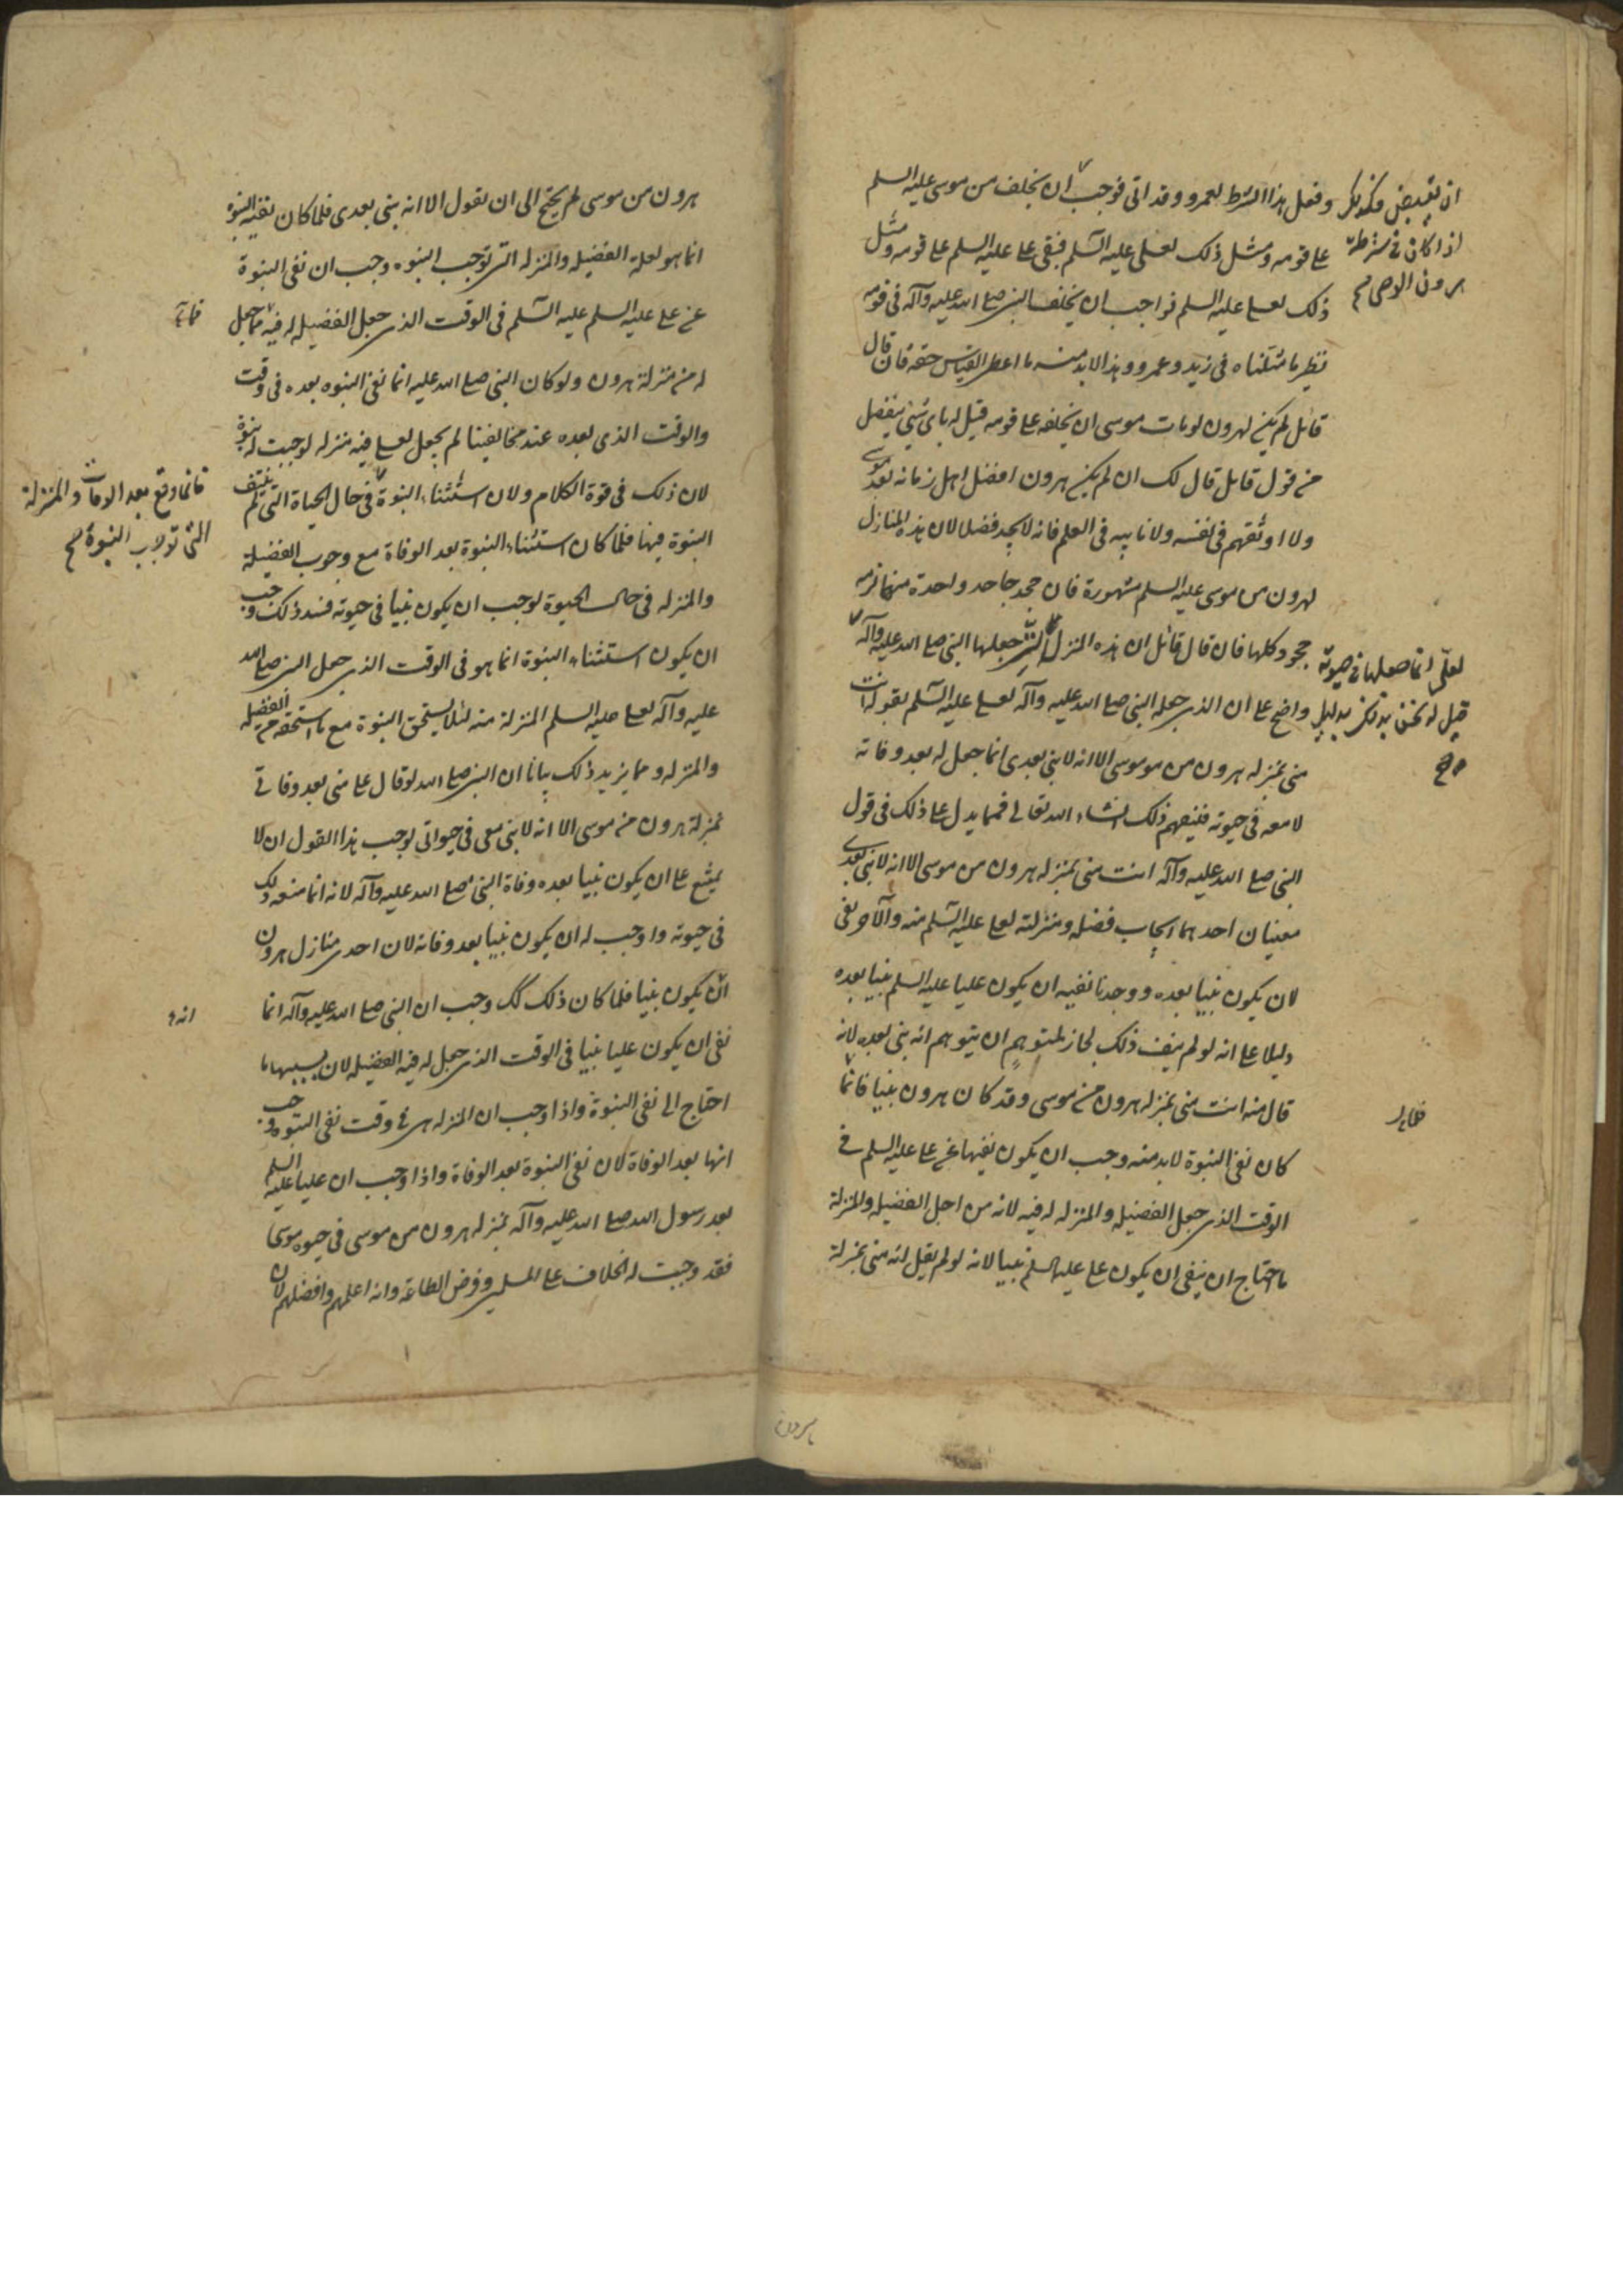 ان يقبض فكذلك
اذا كان في شرط
هرون
وفعل هذا الشرط لعمرو وقد اتى فوجب ان يخلف من موسى عليه السلم
على قومه ومثل ذلك لعلى عليه السلم فبقى على عليه السلم على قومه ومثل
ذلك لعلى عليه السلم فواجب ان يخلف النبى صلى الله عليه وآله فى قومه
نظير ما مثلناه فى زيد وعمرو وهذا لابد منه ما اعطى القياس حقه فان قال
قائل لم يكن لهرون لو مات موسى ان يخلفه على قومه قيل له باى شىء ينفصل
من قول قايل قال لك ان لم يكن هرون افضل اهل زمانه بعد موسى
ولا اوثقهم فى نفسه ولا نايبه فى العلم فانه لا يجد فصلا لان هذه المنازل
لهرون من موسى عليه السلم مشهورة فان جحد جاحد واحدة منها لزمه
جحود كلها فان قال قائل ان هذه المنزلة التى جعلها النبى صلى الله عليه وآله
لعلى انما جعلها فى حيوته
قيل له نحن ندلك بدليل
صح
واضح على ان الذى جعله النبى صلى الله عليه وآله لعلى عليه السلم بقوله انت
منى بمنزله هرون من موموسى الا انه لا نبى بعدى انما جعل له بعد وفاته
لا معه فى حيوته فليفهم ذلك انشاء الله تعالى فمما يدل على ذلك فى قول
النبى صلى الله عليه وآله انت منى بمنزله هرون من موسى الا انه لا نبى بعدى
معنيان احدهما ايجاب فضله ومنزلته لعلى عليه السلم منه والآخر نفى
لان يكون نبيا بعده ووجدنا نفيه ان يكون عليا عليه السلم نبيا بعده
دليلا على انه لو لم ينف ذلك لجاز لمتوهم ان يتوهم انه نبى بعده لانه
قال منه انت منى بمنزله هرون من موسى وقد كان هرون نبيا فانما
كان نفى النبوة لابد منه وجب ان يكون نفيها عن على عليه السلم فى
الوقت الذى جعل الفضيله والمنزله له فيه لانه من اجل الفضيله والمنزلة
ما احتاج ان ينفى ان يكون على عليه السلم نبيا لانه لو لم يقل انه منى بمنزلة
هرون من موسى لم يحتج الى ان يقول الا انه نبى بعدى فلما كان نفيه النبوة
انما هو لعلة الفضيله والمنزله التى توجب النبوه وجب ان نفى النبوة
عن على عليه السلم عليه السلم فى الوقت الذى جعل الفضيله له فيه مما جعل
له من منزلة هرون ولو كان النبى صلى الله عليه انما نفى النبوه بعده فى وقت
والوقت الذى بعده عند مخالفينا لم يجعل لعلى فيه منزله لوجبت له نبوة
لان ذلك فى قوة الكلام ولان استثناء النبوة فى حال الحياة التى لم ينتف
فانما وقع بعد الوفات والمنزلة
التى توجب النبوة صح
النبوة فيها فلما كان استثناء النبوة بعد الوفاة مع وجوب الفضيلة
والمنزله فى حال الحيوة لوجب ان يكون نبيا فى حيوته ففسد ذلك وجب
ان يكون استثناء النبوة انما هو فى الوقت الذى جعل النبى صلى الله
عليه وآله لعلى عليه السلم المنزلة منه لئلا يستحق النبوة مع ما استحقه من الفضله
والمنزله ومما يزيد ذلك بيانا ان النبى صلى الله لو قال على منى بعد وفاتى
بمنزلة هرون من موسى الا انه لا نبى معى فى حيواتى لوجب بهذا القول ان لا
يمتنع على ان يكون نبيا بعده وفاة النبى صلى الله عليه وآله لانه انما منعه ذلك
فى حيوته واوجب له ان يكون نبيا بعد وفاته لان احدى منازل هرون
ان يكون نبيا فلما كان ذلك كك وجب ان النبى صلى الله عليه وآله انما
انه
نفى ان يكون عليا نبيا فى الوقت الذى جعل له فيه الفضيله لان بسببها ما
احتاج الى نفى النبوة واذا وجب ان المنزله هى فى وقت نفى النبوة وجب
انها بعد الوفاة لان نفى النبوة بعد الوفاة واذا وجب ان عليا عليه السلم
بعد رسول الله صلى الله عليه وآله بمنزله هرون من موسى فى حيوه موسى
فقد وجبت له الخلافة على المسلمين وفرض الطاعة وانه اعلمهم وافضلهم لان